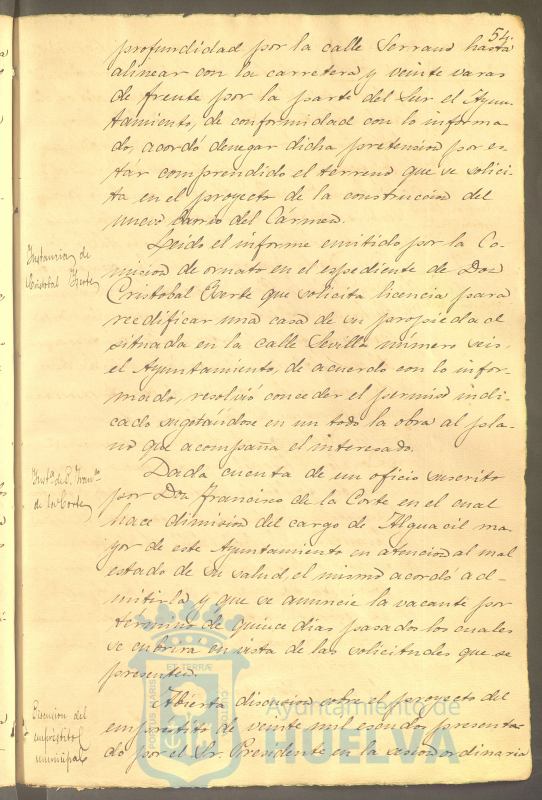 54.
profundidad por la calle Serrano hasta
alinear con la carretera y veinte varas
de frente por la parte del Sur el Ayun-
tamiento, de conformidad con lo informa-
do, acordó denegar dicha pretension por es-
tár comprendido el terreno que se solici-
ta en el proyecto de la construccion del
nuevo barrio del Cármen.
Instancia de
Cristobal
Leido el informe emitido por la Co-
mision de ornato en el espediente de Don
Cristobal que solicita licencia para
reedificar una casa de su propiedad
situada en la calle Sevilla número seis,
el Ayuntamiento, de acuerdo con lo infor-
mado, resolvió conceder el permiso indi-
cado sugetándose en un todo la obra al pla-
no que acompaña el interesado.
Insta. de D. Franco.
de la Corte
Dada cuenta de un oficio suscrito
por Don Francisco de la Corte en el cual
hace dimision del cargo de Alguacil ma-
yor de este Ayuntamiento en atencion al mal
estado de su salud, el mismo acordó ad-
mitirla y que se anuncie la vacante por
término de quince dias pasados los cuales
se cubrirá en vista de las solicitudes que se
presenten.
Discusion del
empréstito
municipal
Abierta discusion sobre el proyecto del
empréstito de veinte mil escudos presenta-
do por el Sr. Presidente en la sesion ordinaria
PORTUS MARIS
ET TERRÆ
CUSTODIA
Ayuntamiento de
HUELVA